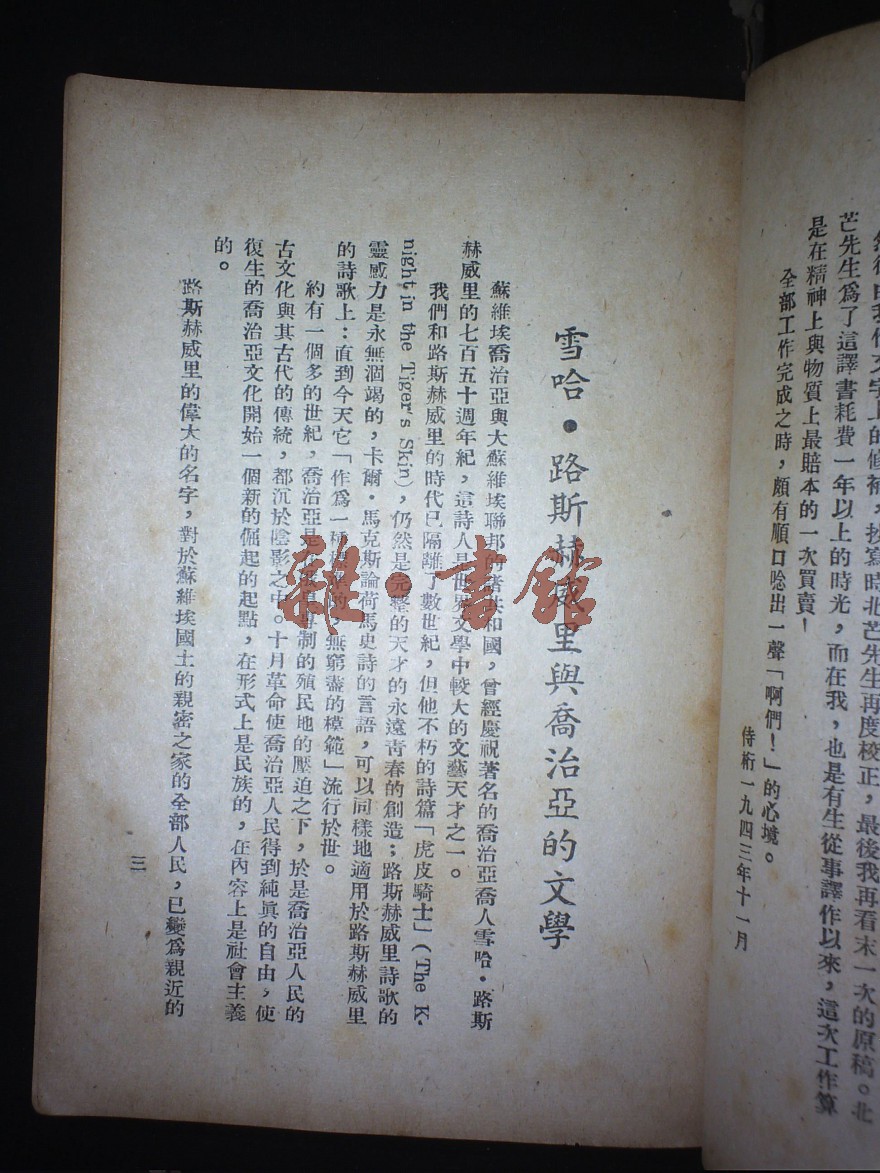 然後由我作文字上的修補,抄寫時北芒先生再度校正,最後我再看末一次的原稿。北
芒先生爲了這譯書耗費一年以上的時光,而在我,也是有生從事譯作以來,這次工作算
是在精神上與物質上最賠本的一次買賣!
全部工作完成之時,頗有順口唸出一聲「啊們!」的心境。
侍桁一九四三年十一月
雪哈·路斯赫威里與喬治亞的文學
蘇維埃喬治亞與大蘇維埃聯邦的諸共和國,曾經慶祝著名的喬治亞喬人雪哈·路斯
赫威里的七百五十週年紀,這詩人是世界文學中較大的文藝天才之一。
我們和路斯赫威里的時代已隔離了數世紀,但他不朽的詩篇「虎皮騎士」(The K-
night in the Tiger's Skin),仍然是完整的天才的永遠青春的創造;路斯赫威里詩歌的
靈感力是永無涸竭的,卡爾·馬克斯論荷馬史詩的言語,可以同樣地適用於路斯赫威里
的詩歌上:直到今天它「作爲一種的,無窮盡的模範」流行於世。
約有一個多的世紀,喬治亞是專制的殖民地的壓迫之下,於是喬治亞人民的
古文化與其古代的傳統,都沉於陰影之中。十月革命使喬治亞人民得到純眞的自由,使
復生的喬治亞文化開始一個新的倔起的起點,在形式上是民族的,在內容上是社會主義
的。
路斯赫威里的偉大的名字,對於蘇維埃國土的親密之家的全部人民,已變爲親近的
三
雜·書館